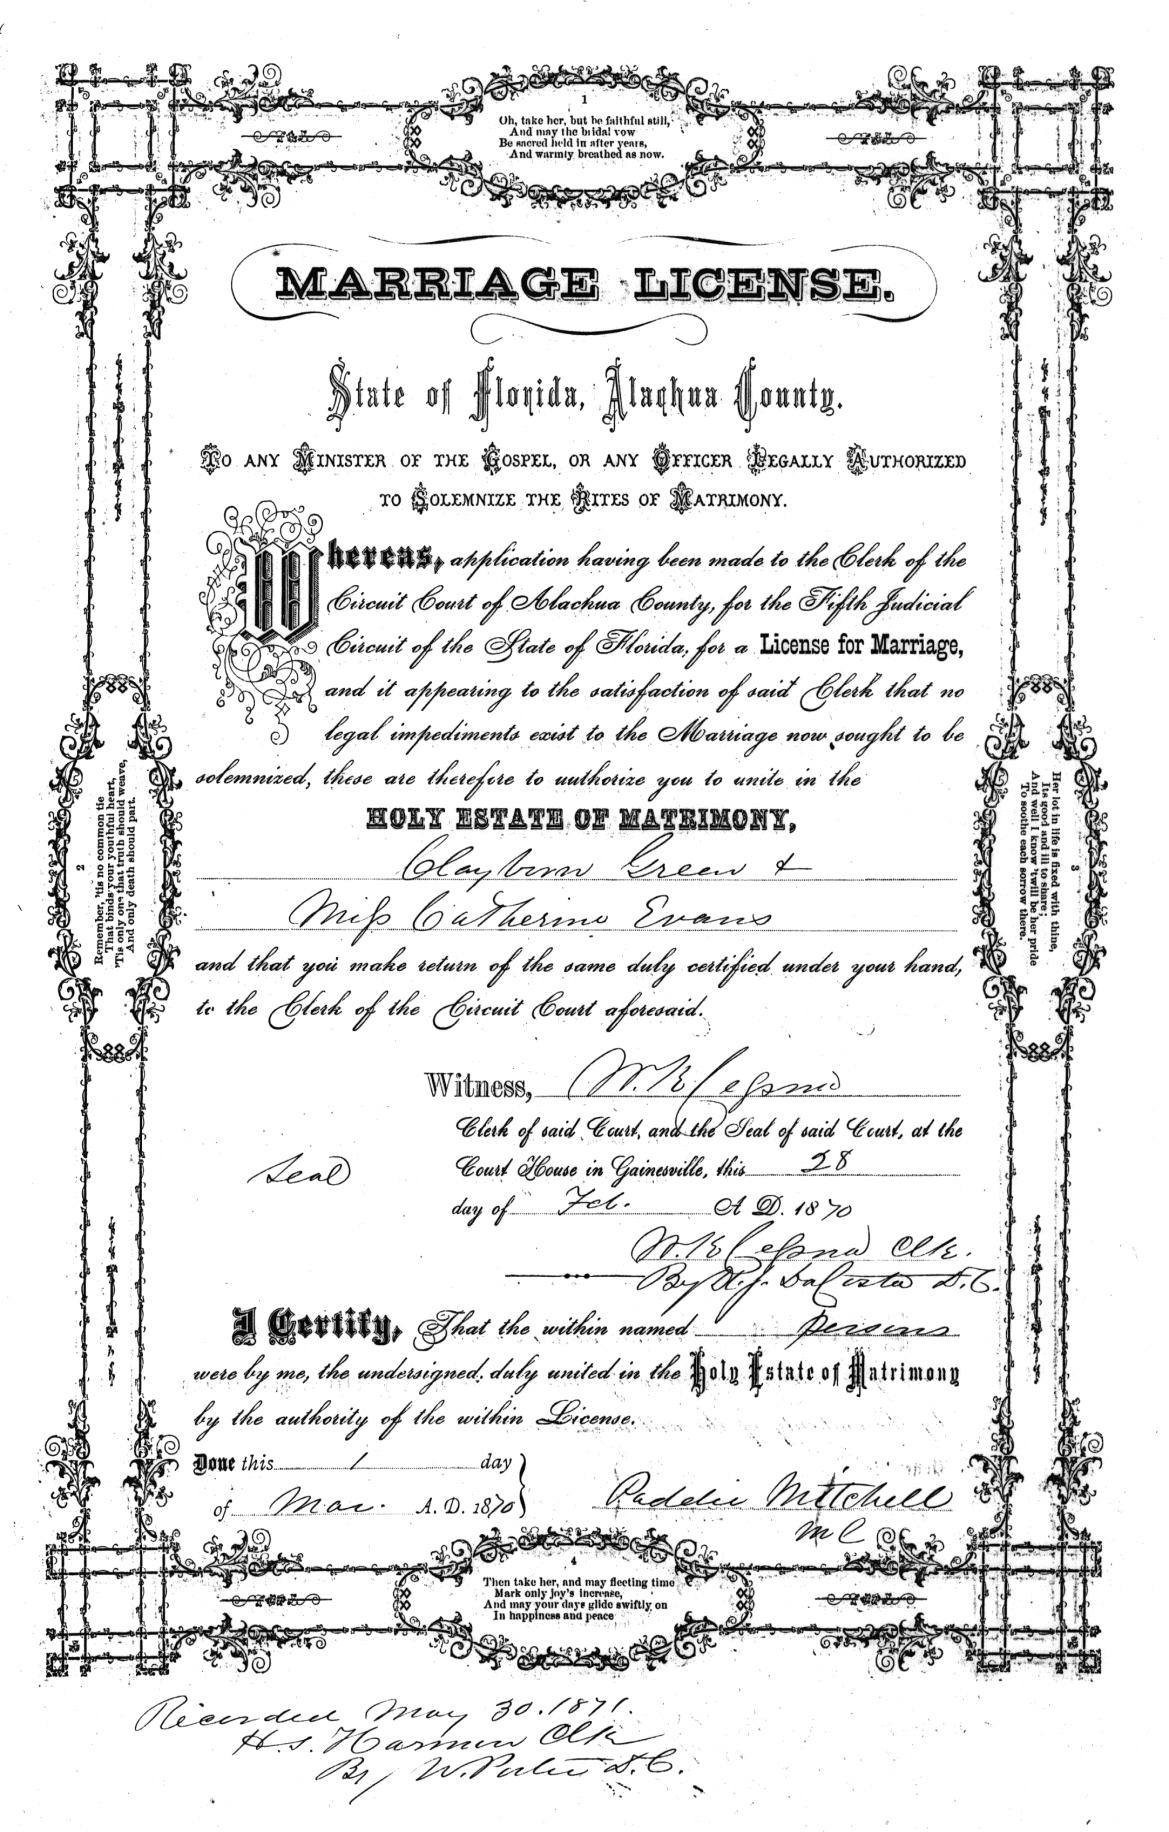 1
Oh, take her, but be faithful still,
And may the bridal vow
Be sacred held in after years,
And warmly breathed as now.
MARRIAGE LICENSE.
State of Florida, Alachua County.
TO ANY MINISTER OF THE GOSPEL, OR ANY OFFICER LEGALLY AUTHORIZED
TO SOLEMNIZE THE RITES OF MATRIMONY.
Whereas, application having been made to the Clerk of the
Circuit Court of Alachua County, for the Fifth Judicial
Circuit of the State of Florida, for a License for Marriage,
and it appearing to the satisfaction of said Clerk that no
legal impediments exist to the Marriage now sought to be
solemnized, these are therefore to authorize you to unite in the
HOLY ESTATE OF MATRIMONY,
Clayborn Green &
Miss Catherine Evans
and that you make return of the same duly certified under your hand,
to the Clerk of the Circuit Court aforesaid.
Witness, W. K. Cessna
Clerk of said Court, and the Seal of said Court, at the
Seal
Court House in Gainesville, this 28
day of Feb. A. D. 1870
W. K. Cessna Clk.
By R. J. DaCosta D.C.
I Certify, That the within named persons
were by me, the undersigned, duly united in the Holy Estate of Matrimony
by the authority of the within License.
Done this 1 day
of Mar. A. D. 1870
Mitchell
M C
2
Remember, 'tis no common tie
That binds your youthful heart,
'Tis only one that truth should weave,
And only death should part.
3
Her lot in life is fixed with thine,
Its good and ill to share;
And well I know 'twill be her pride
To soothe each sorrow there.
4
Then take her, and may fleeting time
Mark only joy's increase,
And may your days glide swiftly on
In happiness and peace
Recorded May 30. 1871.
H. S. Harmon Clk
By W. Porter D.C.